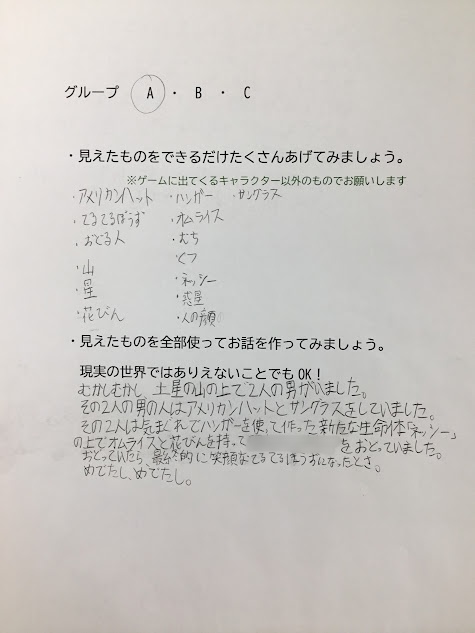 グループ A ・ B ・ C
・見えたものをできるだけたくさんあげてみましょう。
※ゲームに出てくるキャラクター以外のものでお願いします
・アメリカンハット ・ハンガー ・サングラス
・てるてるぼうず ・オムライス
・おどる人 ・むち
・くつ
・山 ・ネッシー
・星 ・惑星
・花びん ・人の顔
・見えたものを全部使ってお話を作ってみましょう。
現実の世界ではありえないことでもOK！
むかしむかし 土星の山の上で2人の男がいました。
その2人の男の人はアメリカンハットとサングラスをしていました。
その2人は気まぐれでハンガーを使って作った新たな生命体「ネッシー」
の上でオムライスと花びんを持って をおどっていました。
おどっていたら 最終的に笑顔なてるてるぼうずになったとさ。
めでたし、めでたし。